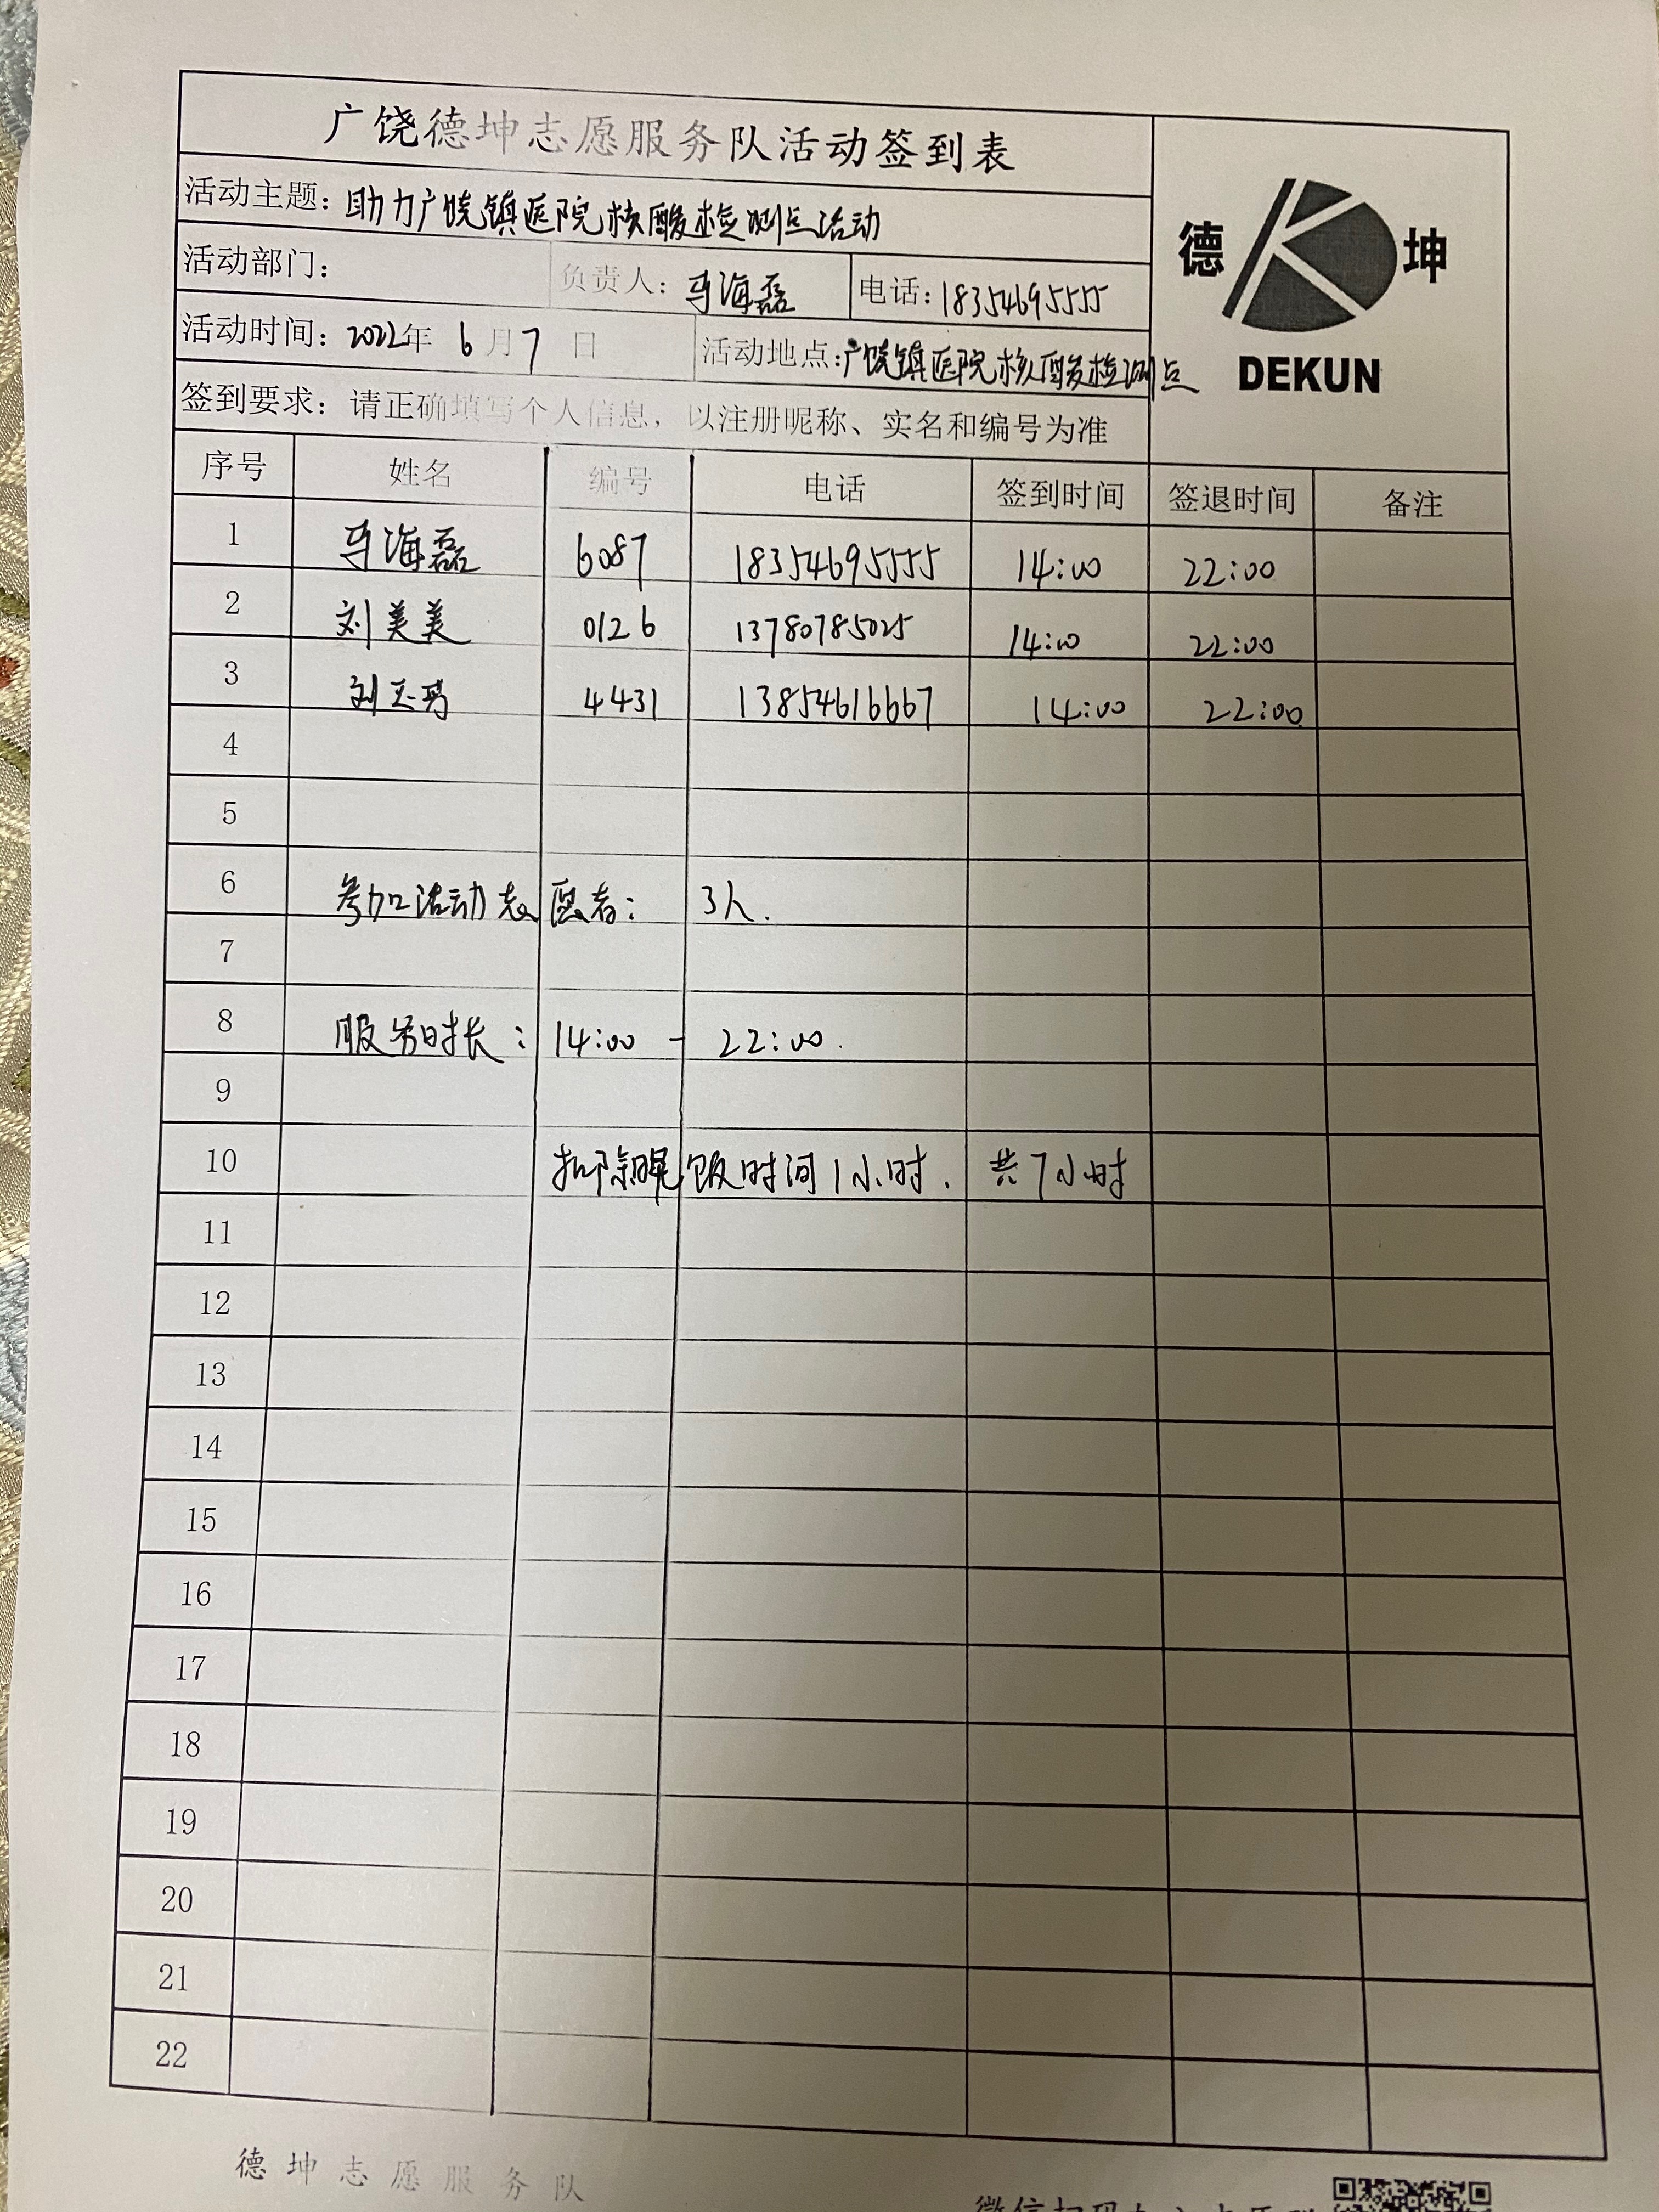 广饶德坤志愿服务队活动签到表
活动主题：助力广饶镇医院核酸检测点活动
德 坤
活动部门： 负责人：马海磊 电话：18354695555
活动时间：2022年 6月7 日 活动地点：广饶镇医院核酸检测点
DEKUN
签到要求：请正确填写个人信息，以注册昵称、实名和编号为准
序号 姓名 编号 电话 签到时间 签退时间 备注
1 马海磊 6087 18354695555 14:00 22:00
2 刘美美 0126 13780785025 14:00 22:00
3 刘 4431 13854616667 14:00 22:00
4
5
6 参加活动志愿者： 3人.
7
8 服务时长：14:00 - 22:00.
9
10 扣除晚饭时间1小时. 共7小时
11
12
13
14
15
16
17
18
19
20
21
22
德坤志愿服务队
微信扫码